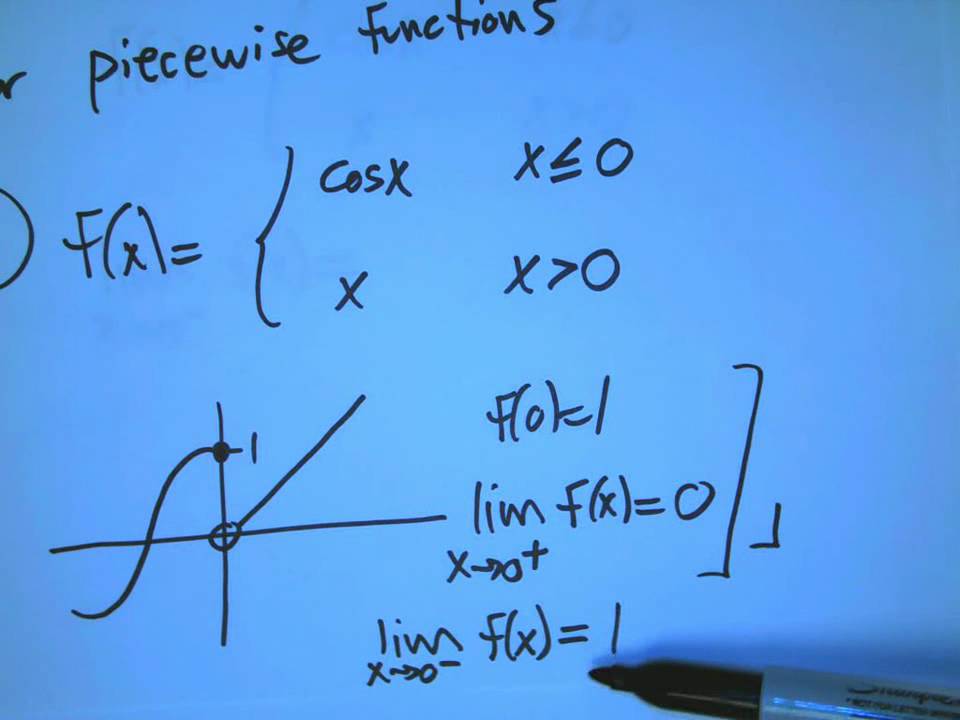 piecewise functions
f(x)= { cosx x≤0
x x>0
1
f(0)=1
lim f(x)=0
x→0+
lim f(x)=1
x→0−